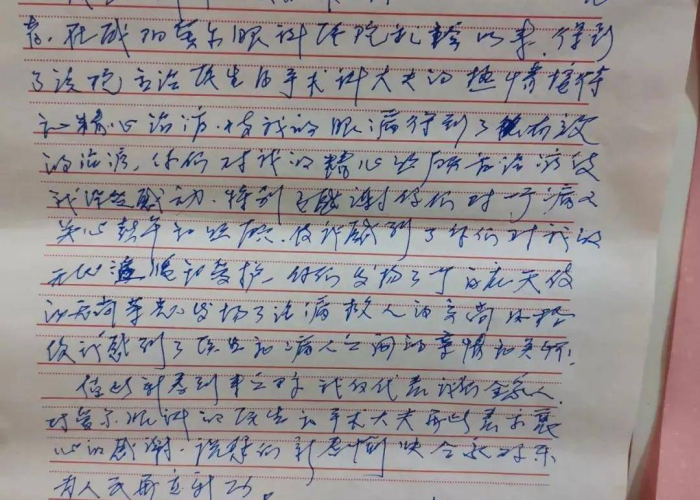 者。在咸阳爱尔眼科医院就诊以来,得到
了该院主治医生及手术科大夫的热情接待
和精心治疗,使我的眼病得到了有效
的治疗,你们对我的精心照顾和治疗使
我非常感动,特别感谢你们对一个病人
关心 和照顾,使我感到了你们对我的
无比温暖和爱护,你们发扬了白衣天使
的 发扬了治病救人的高尚风格
使我感到了医生和病人之间的亲情和关怀!
值此新春到来之际 我仅代表我们全家人
对爱尔眼科的医生和手术大夫再此表示衷
心的感谢,祝你们新春愉快合家欢乐
为人民再立新功。